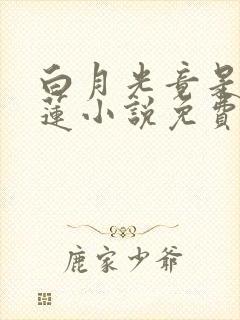 白月光竟是
蓮小說免費
鹿家少爺